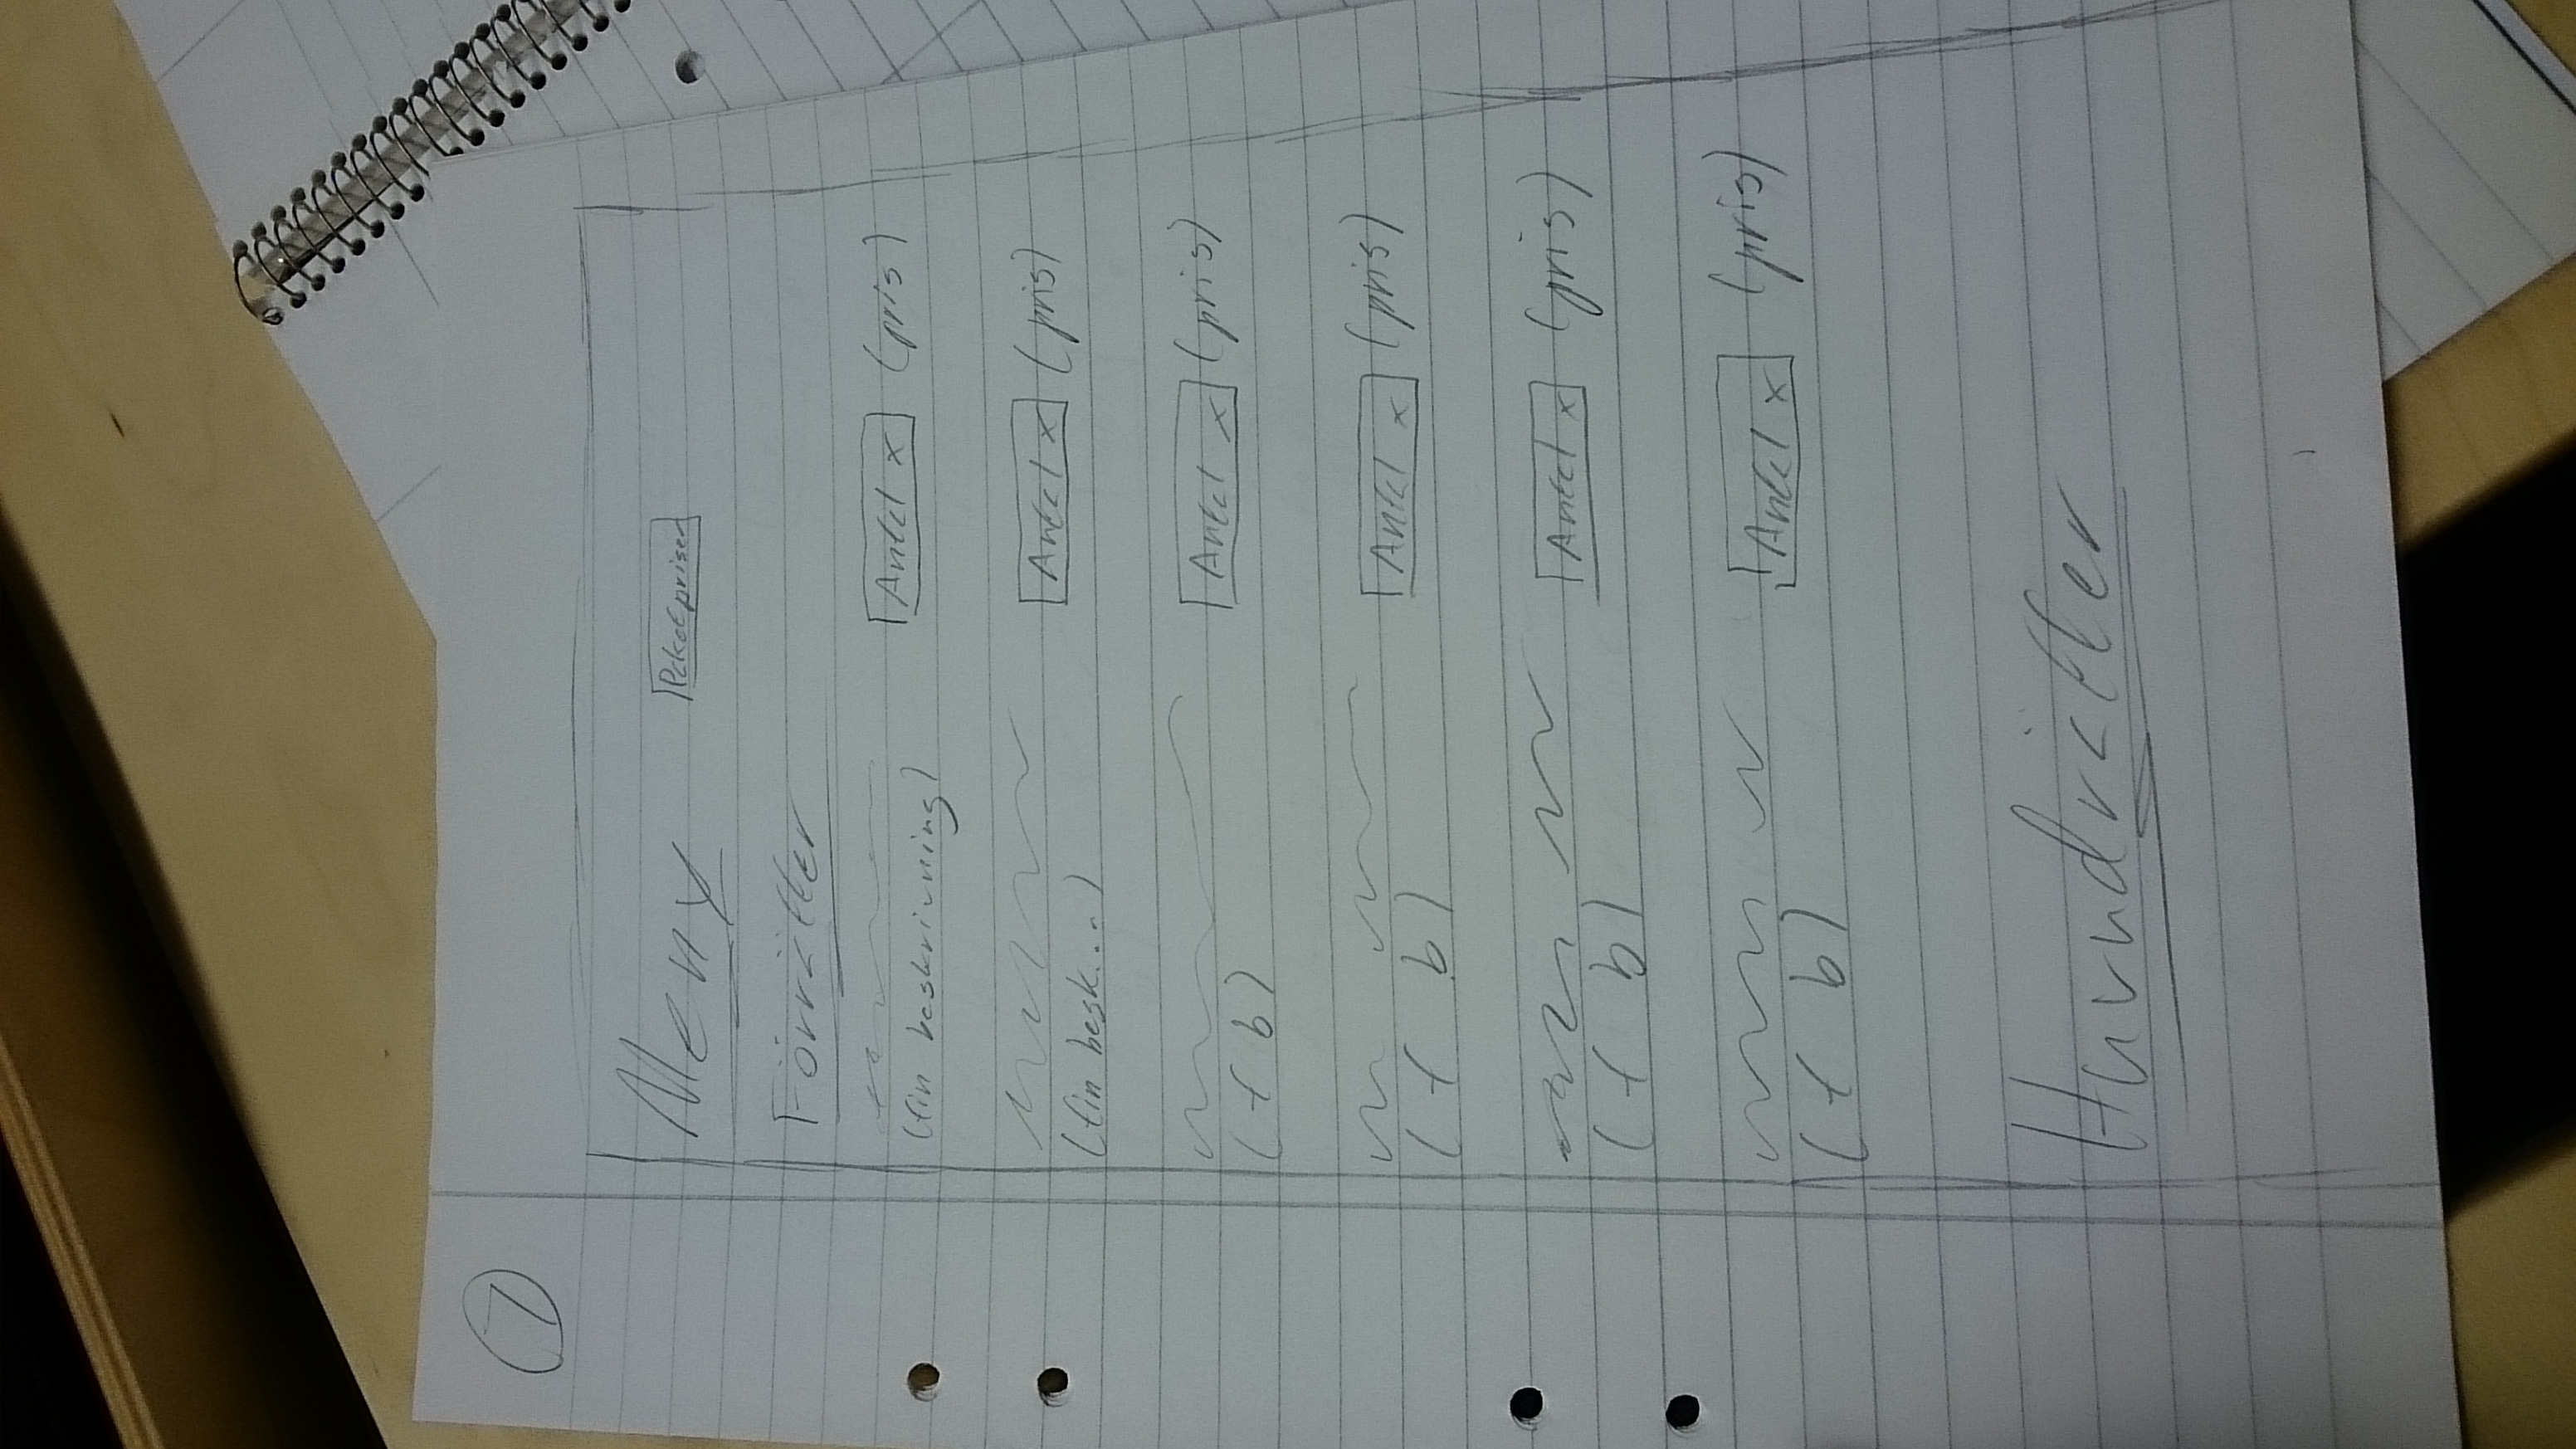 7
Meny Paketpriser
Förrätter
Antal x (pris)
(fin beskrivning)
Antal x (pris)
(fin besk...)
Antal x (pris)
(f b)
Antal x (pris)
(f b)
Antal x (pris)
(f b)
Antal x (pris)
(f b)
Huvudrätter